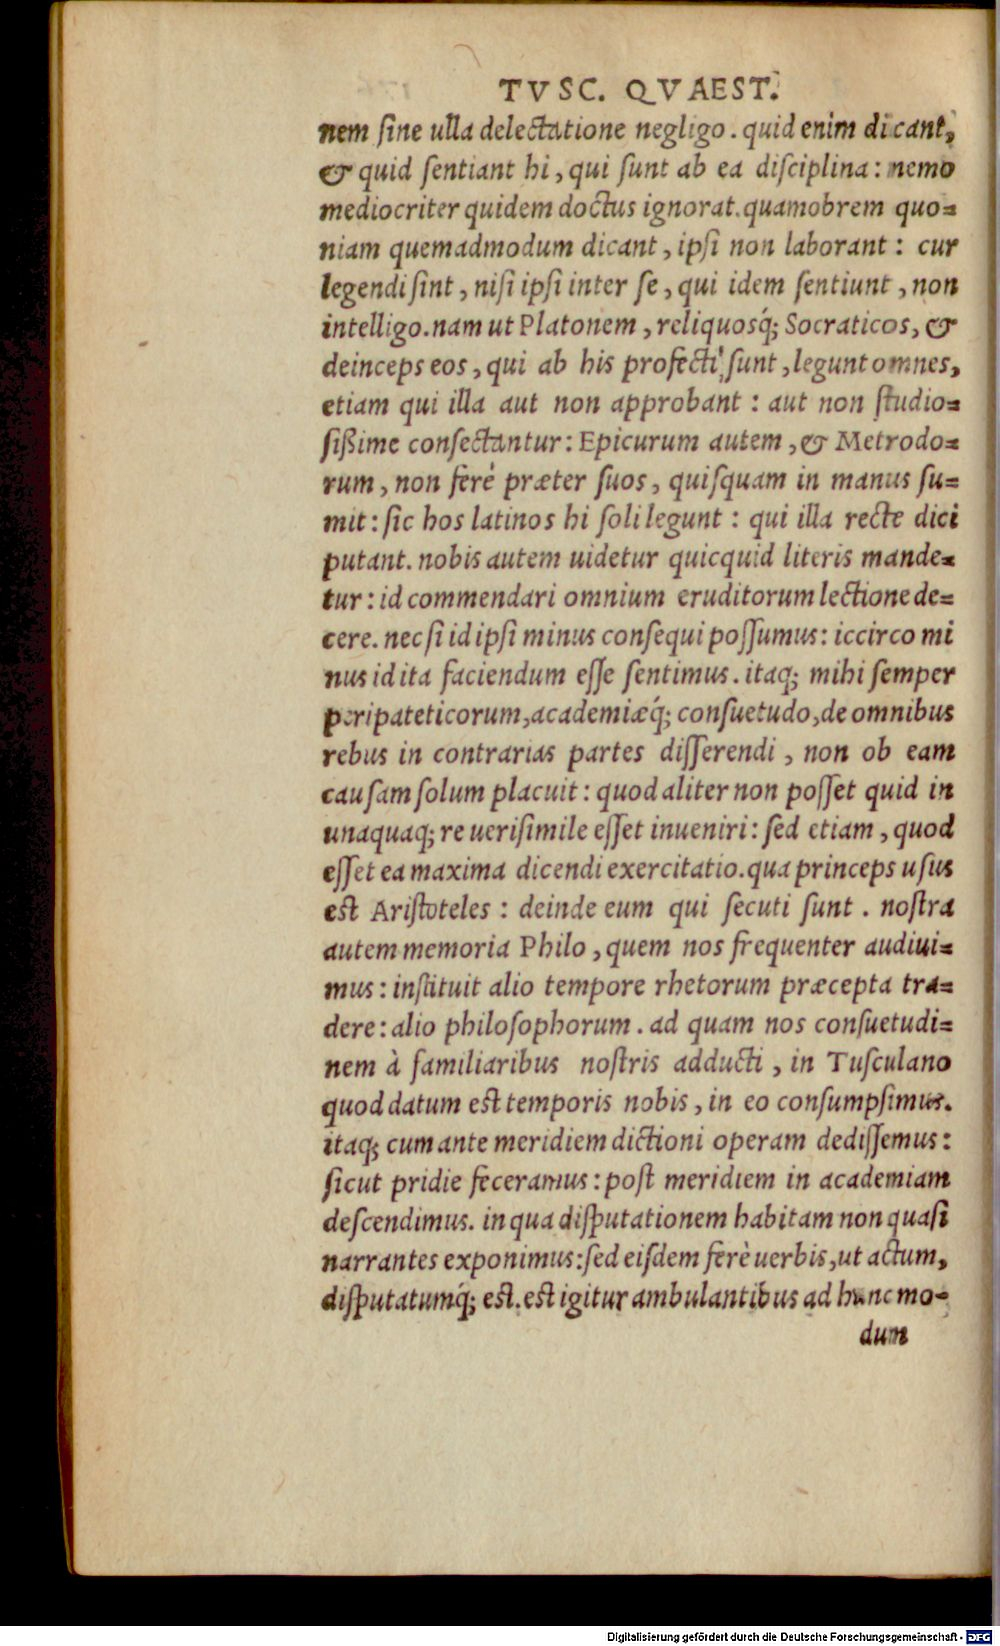 TVSC. QVAEST.
nem ſine ulla delectatione negligo. quid enim dicant,
& quid ſentiant hi, qui ſunt ab ea diſciplina: nemo
mediocriter quidem doctus ignorat. quamobrem quo=
niam quemadmodum dicant, ipſi non laborant: cur
legendi ſint, niſi ipſi inter ſe, qui idem ſentiunt, non
intelligo. nam ut Platonem, reliquosq́; Socraticos, &
deinceps eos, qui ab his profecti ſunt, legunt omnes,
etiam qui illa aut non approbant: aut non ſtudio=
ſißime conſectantur: Epicurum autem, & Metrodo=
rum, non ferè præter ſuos, quiſquam in manus ſu=
mit: ſic hos latinos hi ſoli legunt: qui illa recte dici
putant. nobis autem uidetur quicquid literis mande=
tur: id commendari omnium eruditorum lectione de=
cere. nec ſi id ipſi minus conſequi poſſumus: iccirco mi
nus id ita faciendum eſſe ſentimus. itaq; mihi ſemper
peripateticorum, academiæq́; conſuetudo, de omnibus
rebus in contrarias partes diſſerendi, non ob eam
cauſam ſolum placuit: quod aliter non poſſet quid in
unaquaq; re ueriſimile eſſet inueniri: ſed etiam, quod
eſſet ea maxima dicendi exercitatio. qua princeps uſus
eſt Ariſtoteles: deinde eum qui ſecuti ſunt. noſtra
autem memoria Philo, quem nos frequenter audiui=
mus: inſtituit alio tempore rhetorum præcepta tra=
dere: alio philoſophorum. ad quam nos conſuetudi=
nem à familiaribus noſtris adducti, in Tuſculano
quod datum eſt temporis nobis, in eo conſumpſimus.
itaq; cum ante meridiem dictioni operam dediſſemus:
ſicut pridie feceramus: poſt meridiem in academiam
deſcendimus. in qua diſputationem habitam non quaſi
narrantes exponimus: ſed eiſdem ferè uerbis, ut actum,
diſputatumq́; eſt. eſt igitur ambulantibus ad hunc mo-
dum
Digitalisierung gefördert durch die Deutsche Forschungsgemeinschaft - DFG